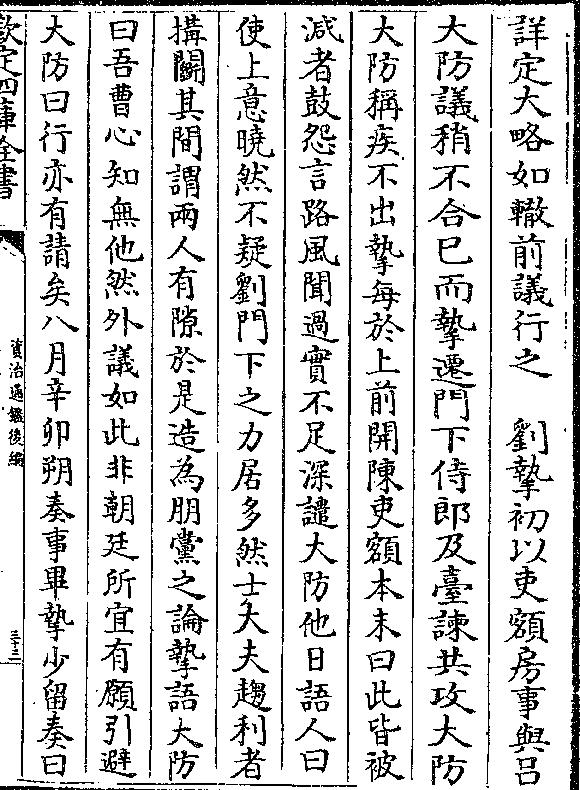 詳定大略如轍前議行之　劉摯初以吏額房事與吕
大防議稍不合已而摯遷門下侍郎及臺諫共攻大防
大防稱疾不出摯每於上前開陳吏額本末曰此皆被
减者鼓怨言路風聞過實不足深譴大防他日語人曰
使上意曉然不疑劉門下之力居多然士大夫趨利者
搆鬬其間謂兩人有隙於是造為朋黨之論摯語大防
曰吾曹心知無他然外議如此非朝廷所宜有願引避
大防曰行亦有請矣八月辛卯朔奏事畢摯少留奏曰
欽定四庫全書
資治通鑑後編
三十三